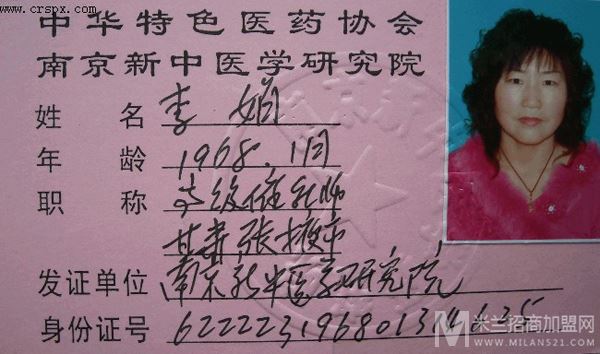 www.crspx.com
中华特色医药协会
南京新中医学研究院
姓 名 李娟
年 龄 1968.1月
职 称 高级催乳师
甘肃张掖市
发证单位 南京新中医学研究院
身份证号
米兰招商加盟网
WWW.MILAN521.COM